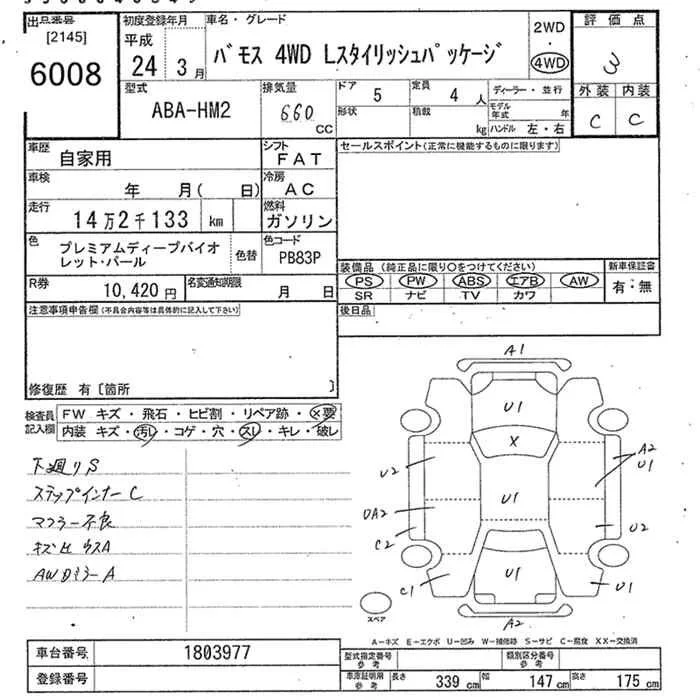 出品番号
[2145]
6008
初度登録年月
平成
24年 3月
車名・グレード
バモス 4WD Lスタイリッシュパッケージ
2WD
・
4WD
評価点
3
外装 内装
C C
型式
ABA-HM2
排気量
660
cc
ドア
5
定員
4 人
ディーラー・並行
モデル年式 年
形状
積載
kg
ハンドル 左・右
車歴
自家用
シフト
FAT
セールスポイント(正常に機能するものに限ります)
車検
年 月( 日)
冷房
AC
走行
14万2千133 km
燃料
ガソリン
色
プレミアムディープバイオ
レット・パール
色替
色コード
PB83P
装備品 (純正品に限り〇をつけてください)
新車保証書
PS PW ABS エアB AW
有:無
SR ナビ TV カワ
R券
10,420 円
名変通知期限
月 日
後日品
注意事項申告欄(不具合内容等は具体的に記入して下さい)
修復歴 有 [箇所 ]
検査員
記入欄
FW キズ・飛石・ヒビ割・リペア跡・×要
内装 キズ・汚レ・コゲ・穴・スレ・キレ・破レ
下廻りS
ステップインナーC
マフラー不良
AWDミラーA
A1
U1
X
A2
U1
U2
U1
DA2
U2
C2
C1
U1
U1
A2
スペア
A-キズ E-エクボ U-凹み W-補修跡 S-サビ C-腐食 XX-交換済
車台番号
1803977
登録番号
型式指定番号
参考
類別区分番号
参考
車庫証明用
参考
長さ 339 cm 幅 147 cm 高さ 175 cm